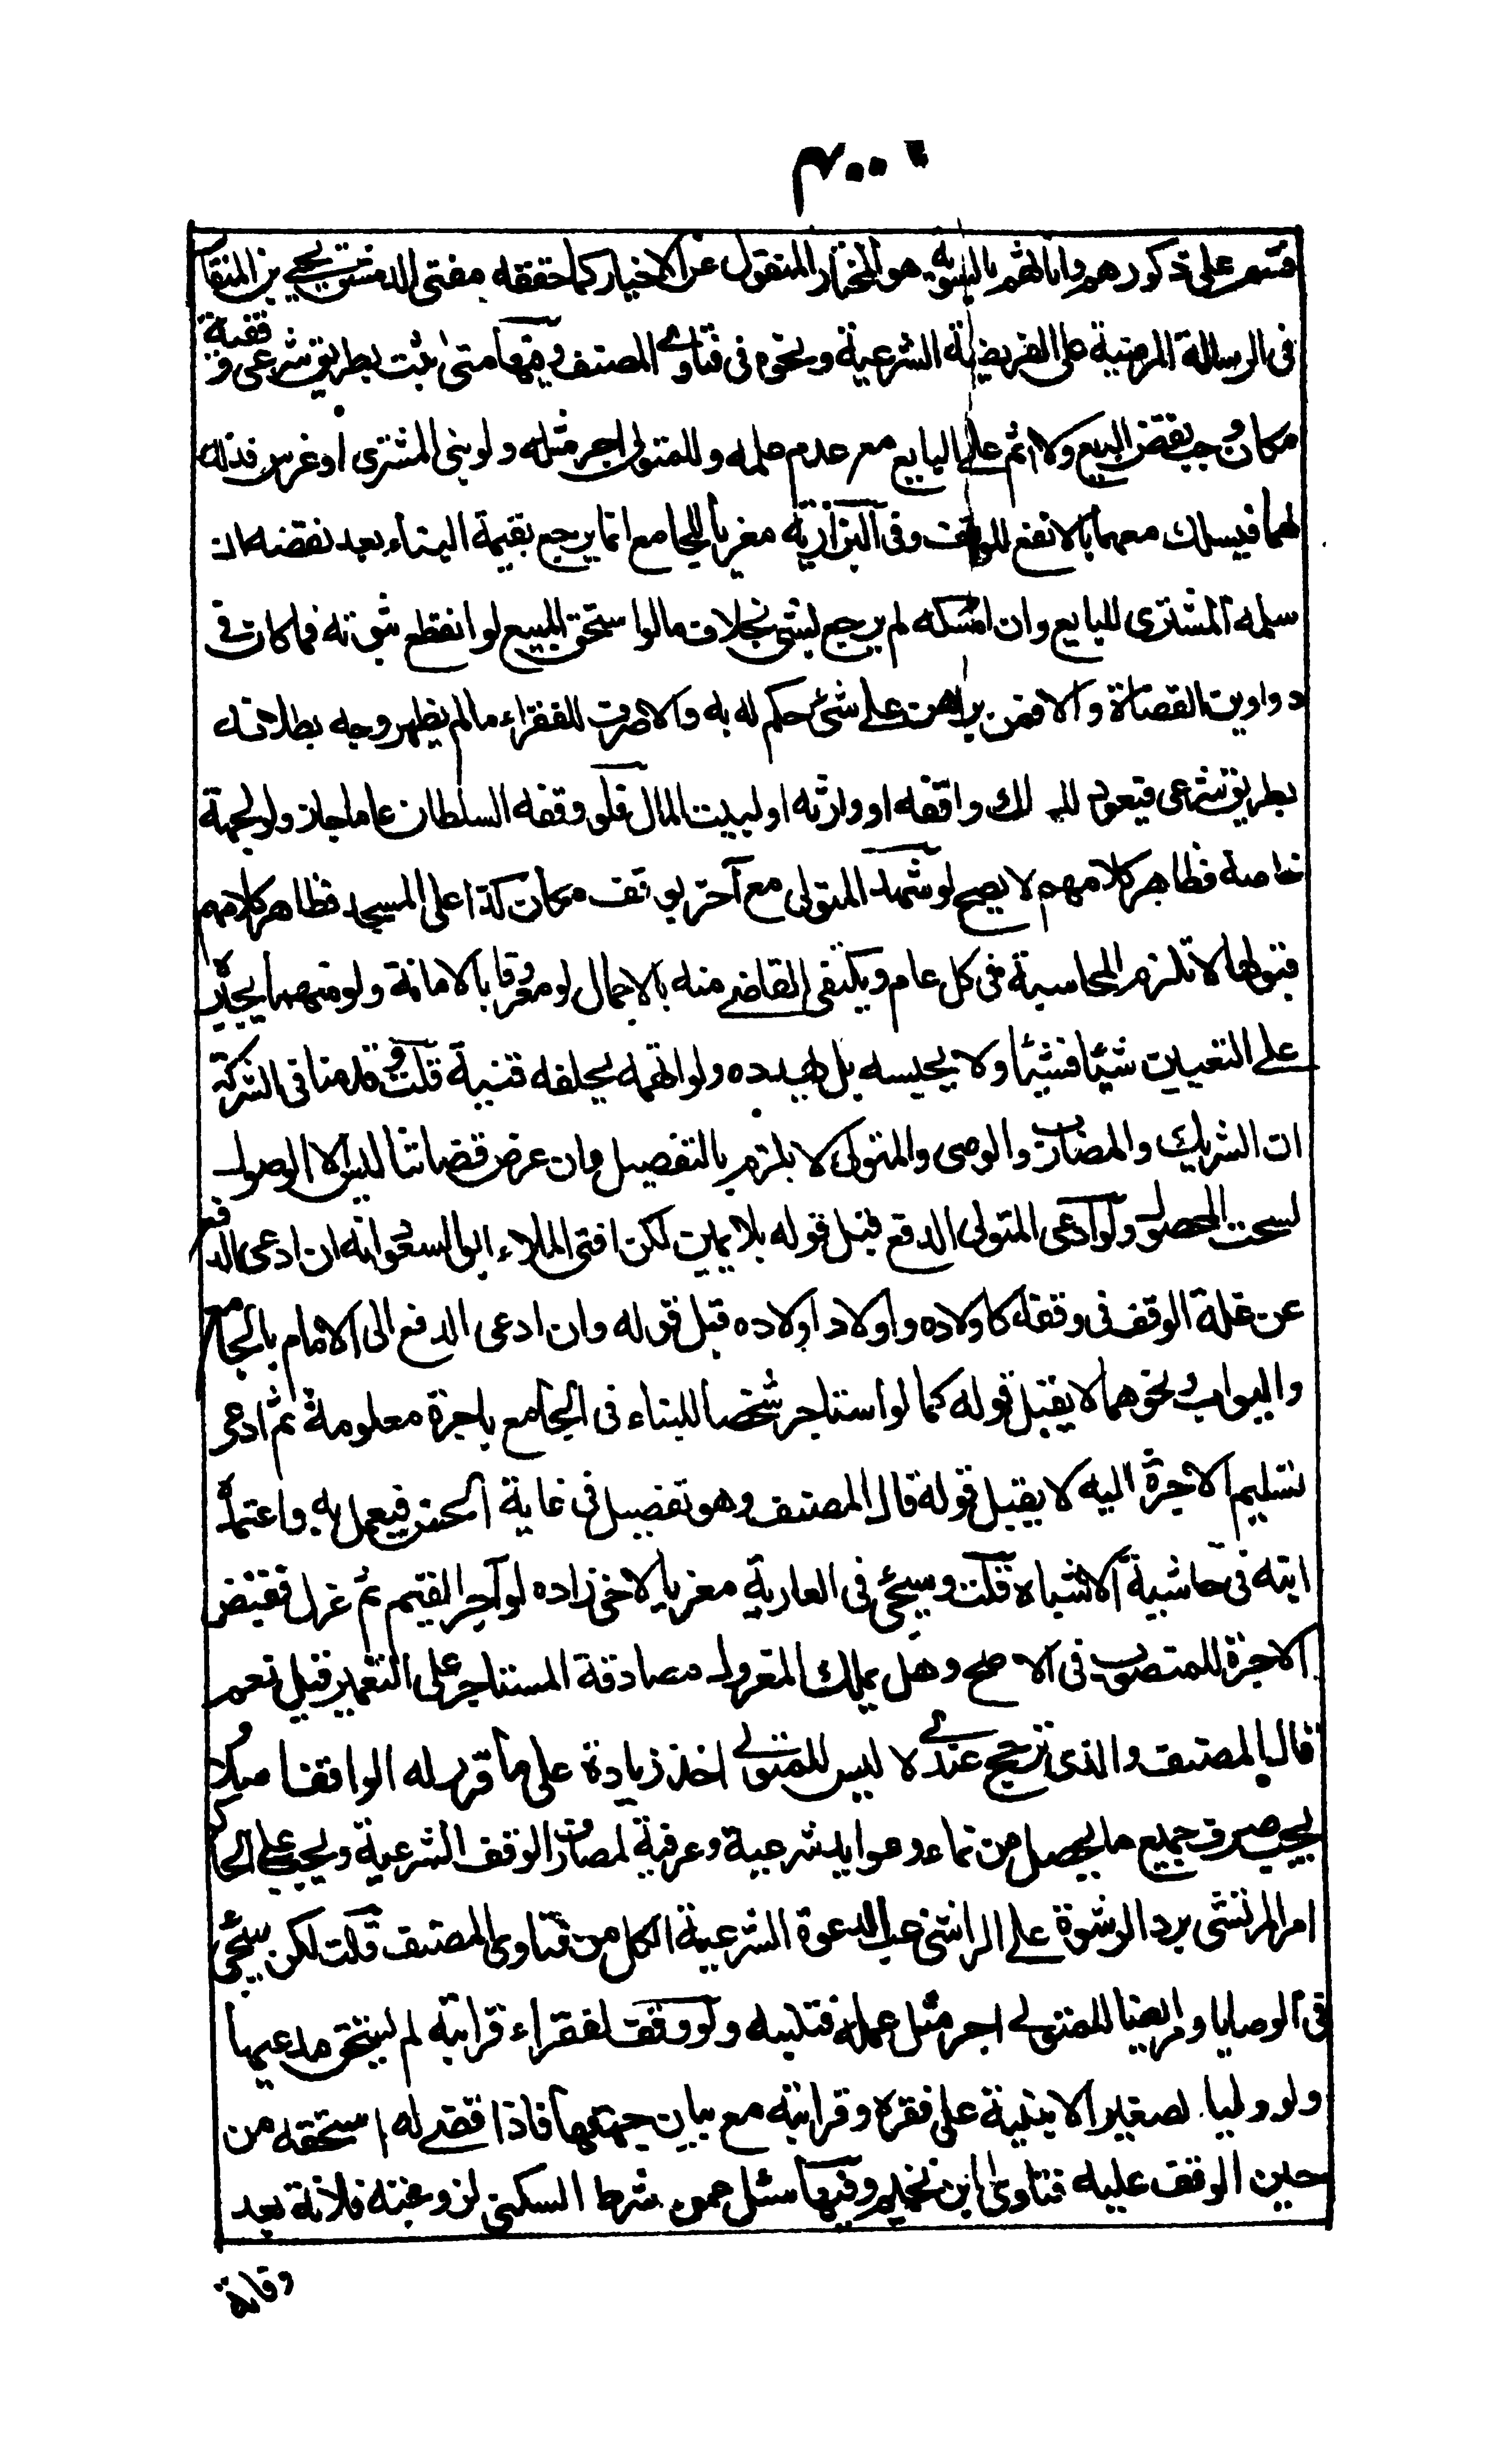 ٣٠٠
قسم على ذكورهم واناثهم بالسويه هو المختار المنقول عن الاخيار كما حققه مفتى الدمشق يحيى بن المنقار
فى الرسالة المرضية على الفريضة الشرعية ونحوه فى فتاوى المصنف وفيها متى ثبت بطريق شرعى وقفية
مكان وجب نقض البيع ولا اثم على البايع مع عدم علمه وللمتولى اجر مثله ولو بنى المشترى او غرس فذلك
لهما فيسلك معهما بالانفع للوقف وفى البزازية مغريا للجامع انما يرجع بقيمة البناء بعد نقضه ان
سلمه المشترى للبايع وان امسكه لم يرجع بشئ بخلاف مالو استحق المبيع لو انقطع ثبوته فما كان فى
دواوين القضاة والا فمن برهن على شئ حكم له به والا صرف للفقراء مالم يظهر وجه بطلانه
بطريق شرعى فيعود لملك واقفه او وارثه او لبيت المال فلو وقفه السلطان عاما جاز ولو لجهة
خاصة فظاهر كلامهم لا يصح لو شهد المتولى مع آخر بوقف مكان كذا على المسجد فظاهر كلامهم
قبولها لا تلزم المحاسبة فى كل عام ويكتفى القاضى منه بالاجمال لو معروفا بالامانة ولو متهما يجبره
على التعيين شيئا فشيئا ولا يحبسه بل يهدده ولو اتهمه يحلفه قنية قلت وقدمنا فى الشركة
ان الشريك والمضارب والوصى والمتولى لا يلزم بالتفصيل وان غرض قضاتنا ليس الا الوصول
لسحت المحصول ولو ادعى المتولى الدفع قبل قوله بلا يمين لكن افتى الملاء ابو السعود انه ان ادعى الدفع
عن غلة الوقف فى وقفه كاولاده واولاد اولاده قبل قوله وان ادعى الدفع الى الامام بالجامع
والبواب ونحوهما لا يقبل قوله كما لو استاجر شخصا للبناء فى الجامع باجرة معلومة ثم ادعى
تسليم الاجرة اليه لا يقبل قوله قال المصنف وهو تفصيل فى غاية الحسن فيعمل به واعتمده
ابنه فى حاشية الاشباه قلت وسيجئ فى العارية مغريا لاخى زاده لو آجر القيم ثم عزل فقبض
الاجرة للمنصوب فى الاصح وهل يملك المعزول مصادقة المستاجر على التعمير قيل نعم
قال المصنف والذى ترجح عندى لا ليس للمتولى اخذ زيادة على ما قرر له الواقف اصلا
يجب صرف جميع ما يحصل من نماء وعوايد شرعية وعرفية لمصارف الوقف الشرعية ويجب على الحاكم
امر المرتشى برد الرشوة على الراشى غب الدعوة الشرعية الكل من فتاوى المصنف قلت لكن سيجئ
فى الوصايا ومر ايضا للمتولى اجر مثل عمله فتنبه ولو وقف لفقراء قرابته لم يستحق مدعيها
ولو وليا لصغير الا ببينة على فقره وقرابته مع بيان جهتها فاذا قضى له استحقه من
حين الوقف عليه فتاوى ابن نجيم وفيها سئل عمن شرط السكنى لزوجته فلانة بعد
وفاة